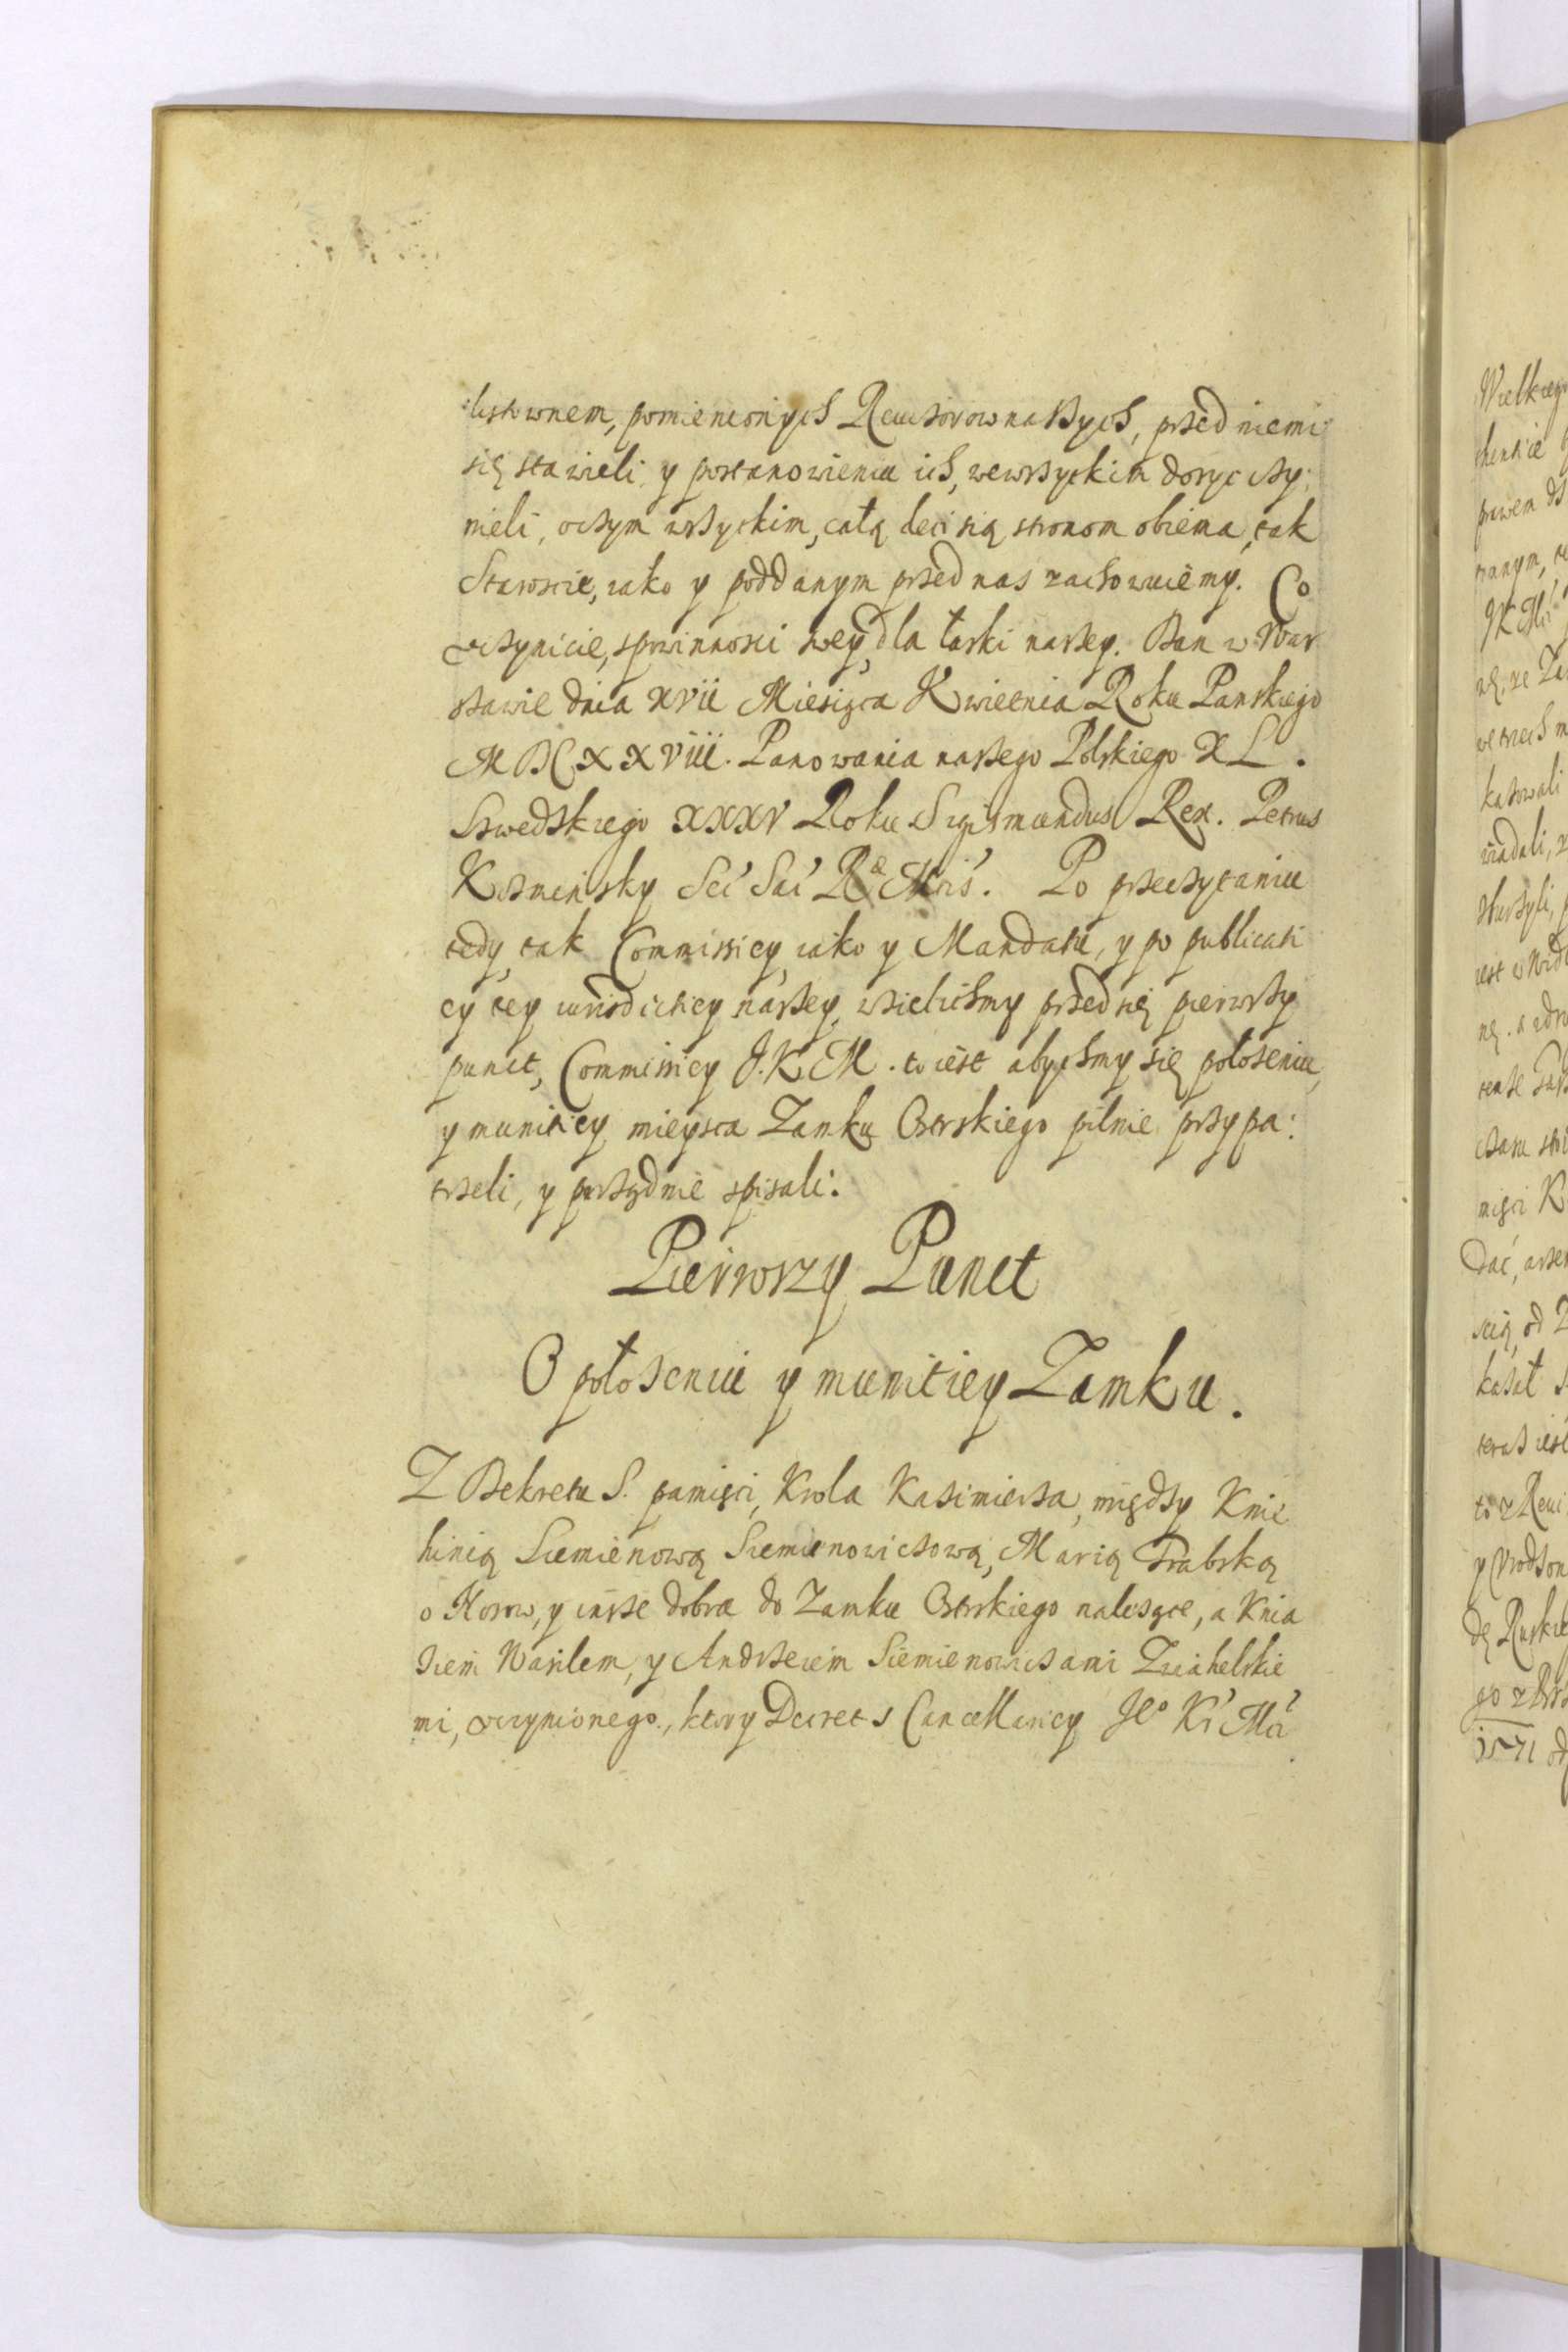 listownem, pomienionych Reuizorow naszych, przed niemi
się stawieli, y postanowieniu ich, wewszyckim dosyc czy:
nieli, oczym wszyckim, całą decisią stronom obiema, tak
Staroscie, iako y poddanym przed nas zachowuiemy. Co
vczynicie, zpowinnosci swey, dla łaski naszey. Dan w War
szawie dnia XVII Miesiąca Kwietnia Roku Panskiego
MDCXXVIII. Panowania naszego Polskiego XL.
Szwedzkiego XXXV Roku Sigismundus Rex. Petrus
Po przeczytaniu
tedy, tak Commissiey, iako y Mandatu, y po publicati
ey tey iurisdictiey naszey, wzielichmy przed się pierwszy
punct, Commissiey J. K. M. to iest abychmy się położeniu,
y munitiey mieysca Zamku Osterskiego pilnie przypa:
trzeli, y porządnie spisali.
Pierwszy Punct
O położeniu y munitiey Zamku.
Z Dekretu S. pamięci, Krola Kazimierza, między Knie
hinią Siemienową Siemienowiczową, Marią Trabską
o Horow, y insze dobra do Zamku Osterskiego należące, a Knia
ziem Wasilem, y Andrzeiem Siemienowiczami Zwiahelskie
mi, vczynionego, ktory Decret s Cancellariey Je⁰ Kr' Mci
Wielkiego
prawem
JK Mci
kazowali
zburzyli,
mięci K
dać,
od Z
kazał
teraz iest
to z Reui
y Vrodzon
dę Ruskie
1571